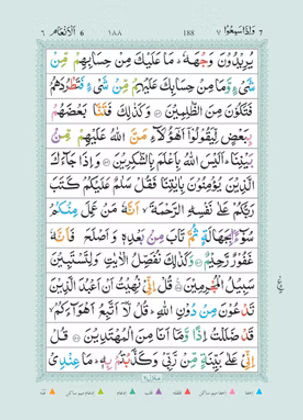 وَاِذَا سَمِعُوْا ٧ 188 ١٨٨ اَلْاَنْعَام ٦
يُرِيْدُوْنَ وَجْهَهٗ ؕ مَا عَلَيْكَ مِنْ حِسَابِهِمْ مِّنْ
شَىْءٍ وَّمَا مِنْ حِسَابِكَ عَلَيْهِمْ مِّنْ شَىْءٍ فَتَطْرُدَهُمْ
فَتَكُوْنَ مِنَ الظّٰلِمِيْنَ ۝ وَكَذٰلِكَ فَتَنَّا بَعْضَهُمْ
بِبَعْضٍ لِّيَقُوْلُوْٓا اَهٰٓؤُلَآءِ مَنَّ اللّٰهُ عَلَيْهِمْ مِّنْۢ
بَيْنِنَا ؕ اَلَيْسَ اللّٰهُ بِاَعْلَمَ بِالشّٰكِرِيْنَ ۝ وَاِذَا جَآءَكَ
الَّذِيْنَ يُؤْمِنُوْنَ بِاٰيٰتِنَا فَقُلْ سَلٰمٌ عَلَيْكُمْ كَتَبَ
رَبُّكُمْ عَلٰى نَفْسِهِ الرَّحْمَةَ ۙ اَنَّهٗ مَنْ عَمِلَ مِنْكُمْ
سُوْٓءًۢا بِجَهَالَةٍ ثُمَّ تَابَ مِنْۢ بَعْدِهٖ وَاَصْلَحَ ۙ فَاَنَّهٗ
غَفُوْرٌ رَّحِيْمٌ ۝ وَكَذٰلِكَ نُفَصِّلُ الْاٰيٰتِ وَلِتَسْتَبِيْنَ
سَبِيْلُ الْمُجْرِمِيْنَ ۝ قُلْ اِنِّيْ نُهِيْتُ اَنْ اَعْبُدَ الَّذِيْنَ
تَدْعُوْنَ مِنْ دُوْنِ اللّٰهِ ؕ قُلْ لَّآ اَتَّبِعُ اَهْوَآءَكُمْ ۙ
قَدْ ضَلَلْتُ اِذًا وَّمَآ اَنَا مِنَ الْمُهْتَدِيْنَ ۝ قُلْ
اِنِّيْ عَلٰى بَيِّنَةٍ مِّنْ رَّبِّيْ وَكَذَّبْتُمْ بِهٖ ؕ مَا عِنْدِيْ